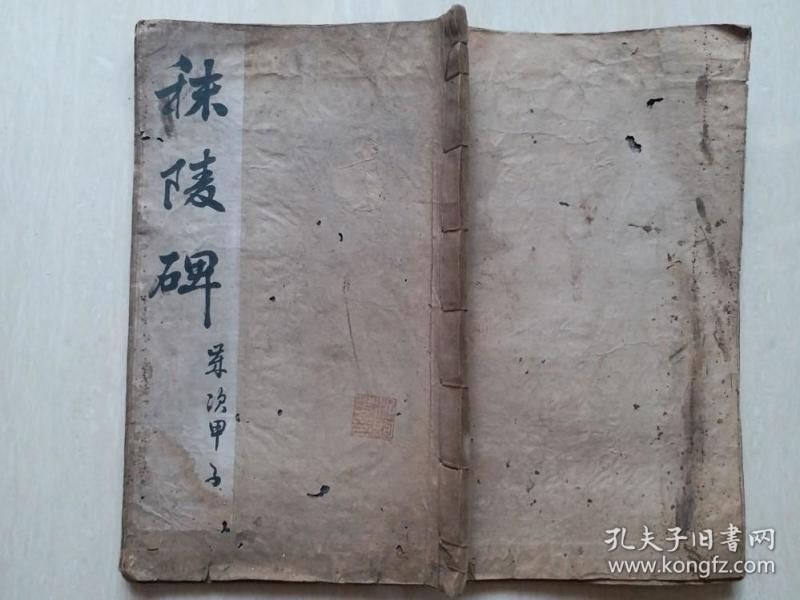 秣陵碑
岁次甲子
孔夫子旧书网
www.kongfz.com